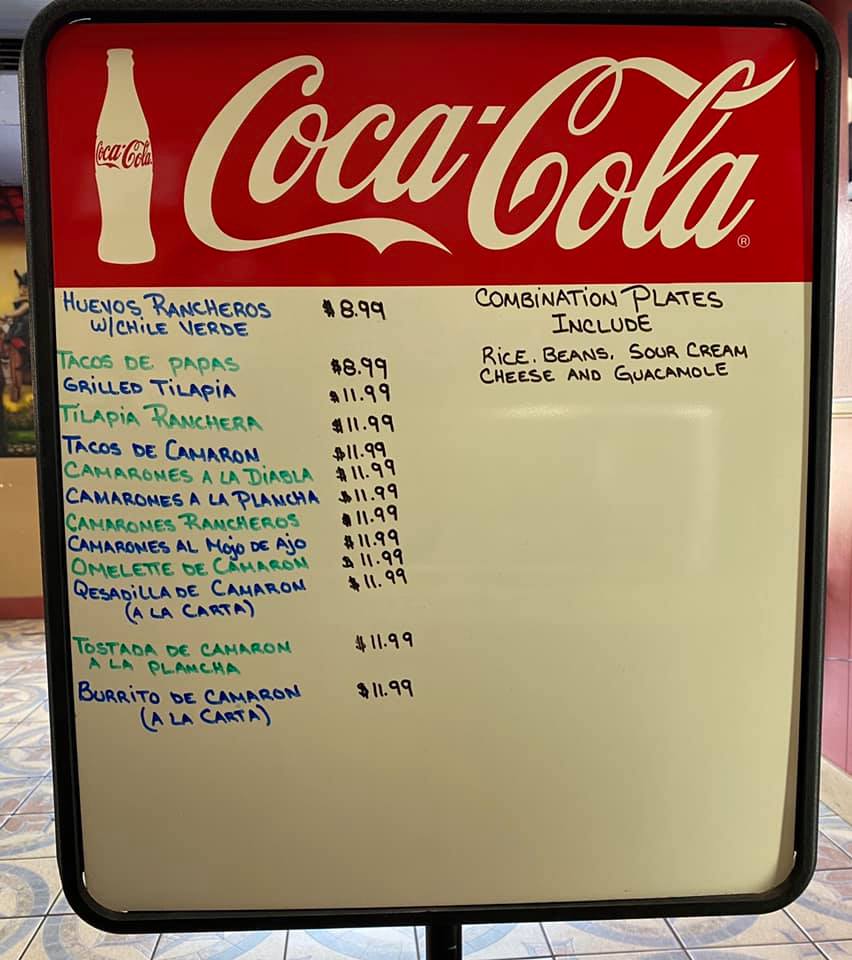 Coca-Cola
Coca-Cola ®
HUEVOS RANCHEROS $8.99
W/CHILE VERDE
TACOS DE PAPAS $8.99
GRILLED TILAPIA $11.99
TILAPIA RANCHERA $11.99
TACOS DE CAMARON $11.99
CAMARONES A LA DIABLA $11.99
CAMARONES A LA PLANCHA $11.99
CAMARONES RANCHEROS $11.99
CAMARONES AL MOJO DE AJO $11.99
OMELETTE DE CAMARON $11.99
QESADILLA DE CAMARON $11.99
(A LA CARTA)
TOSTADA DE CAMARON $11.99
A LA PLANCHA
BURRITO DE CAMARON $11.99
(A LA CARTA)
COMBINATION PLATES
INCLUDE
RICE. BEANS. SOUR CREAM
CHEESE AND GUACAMOLE